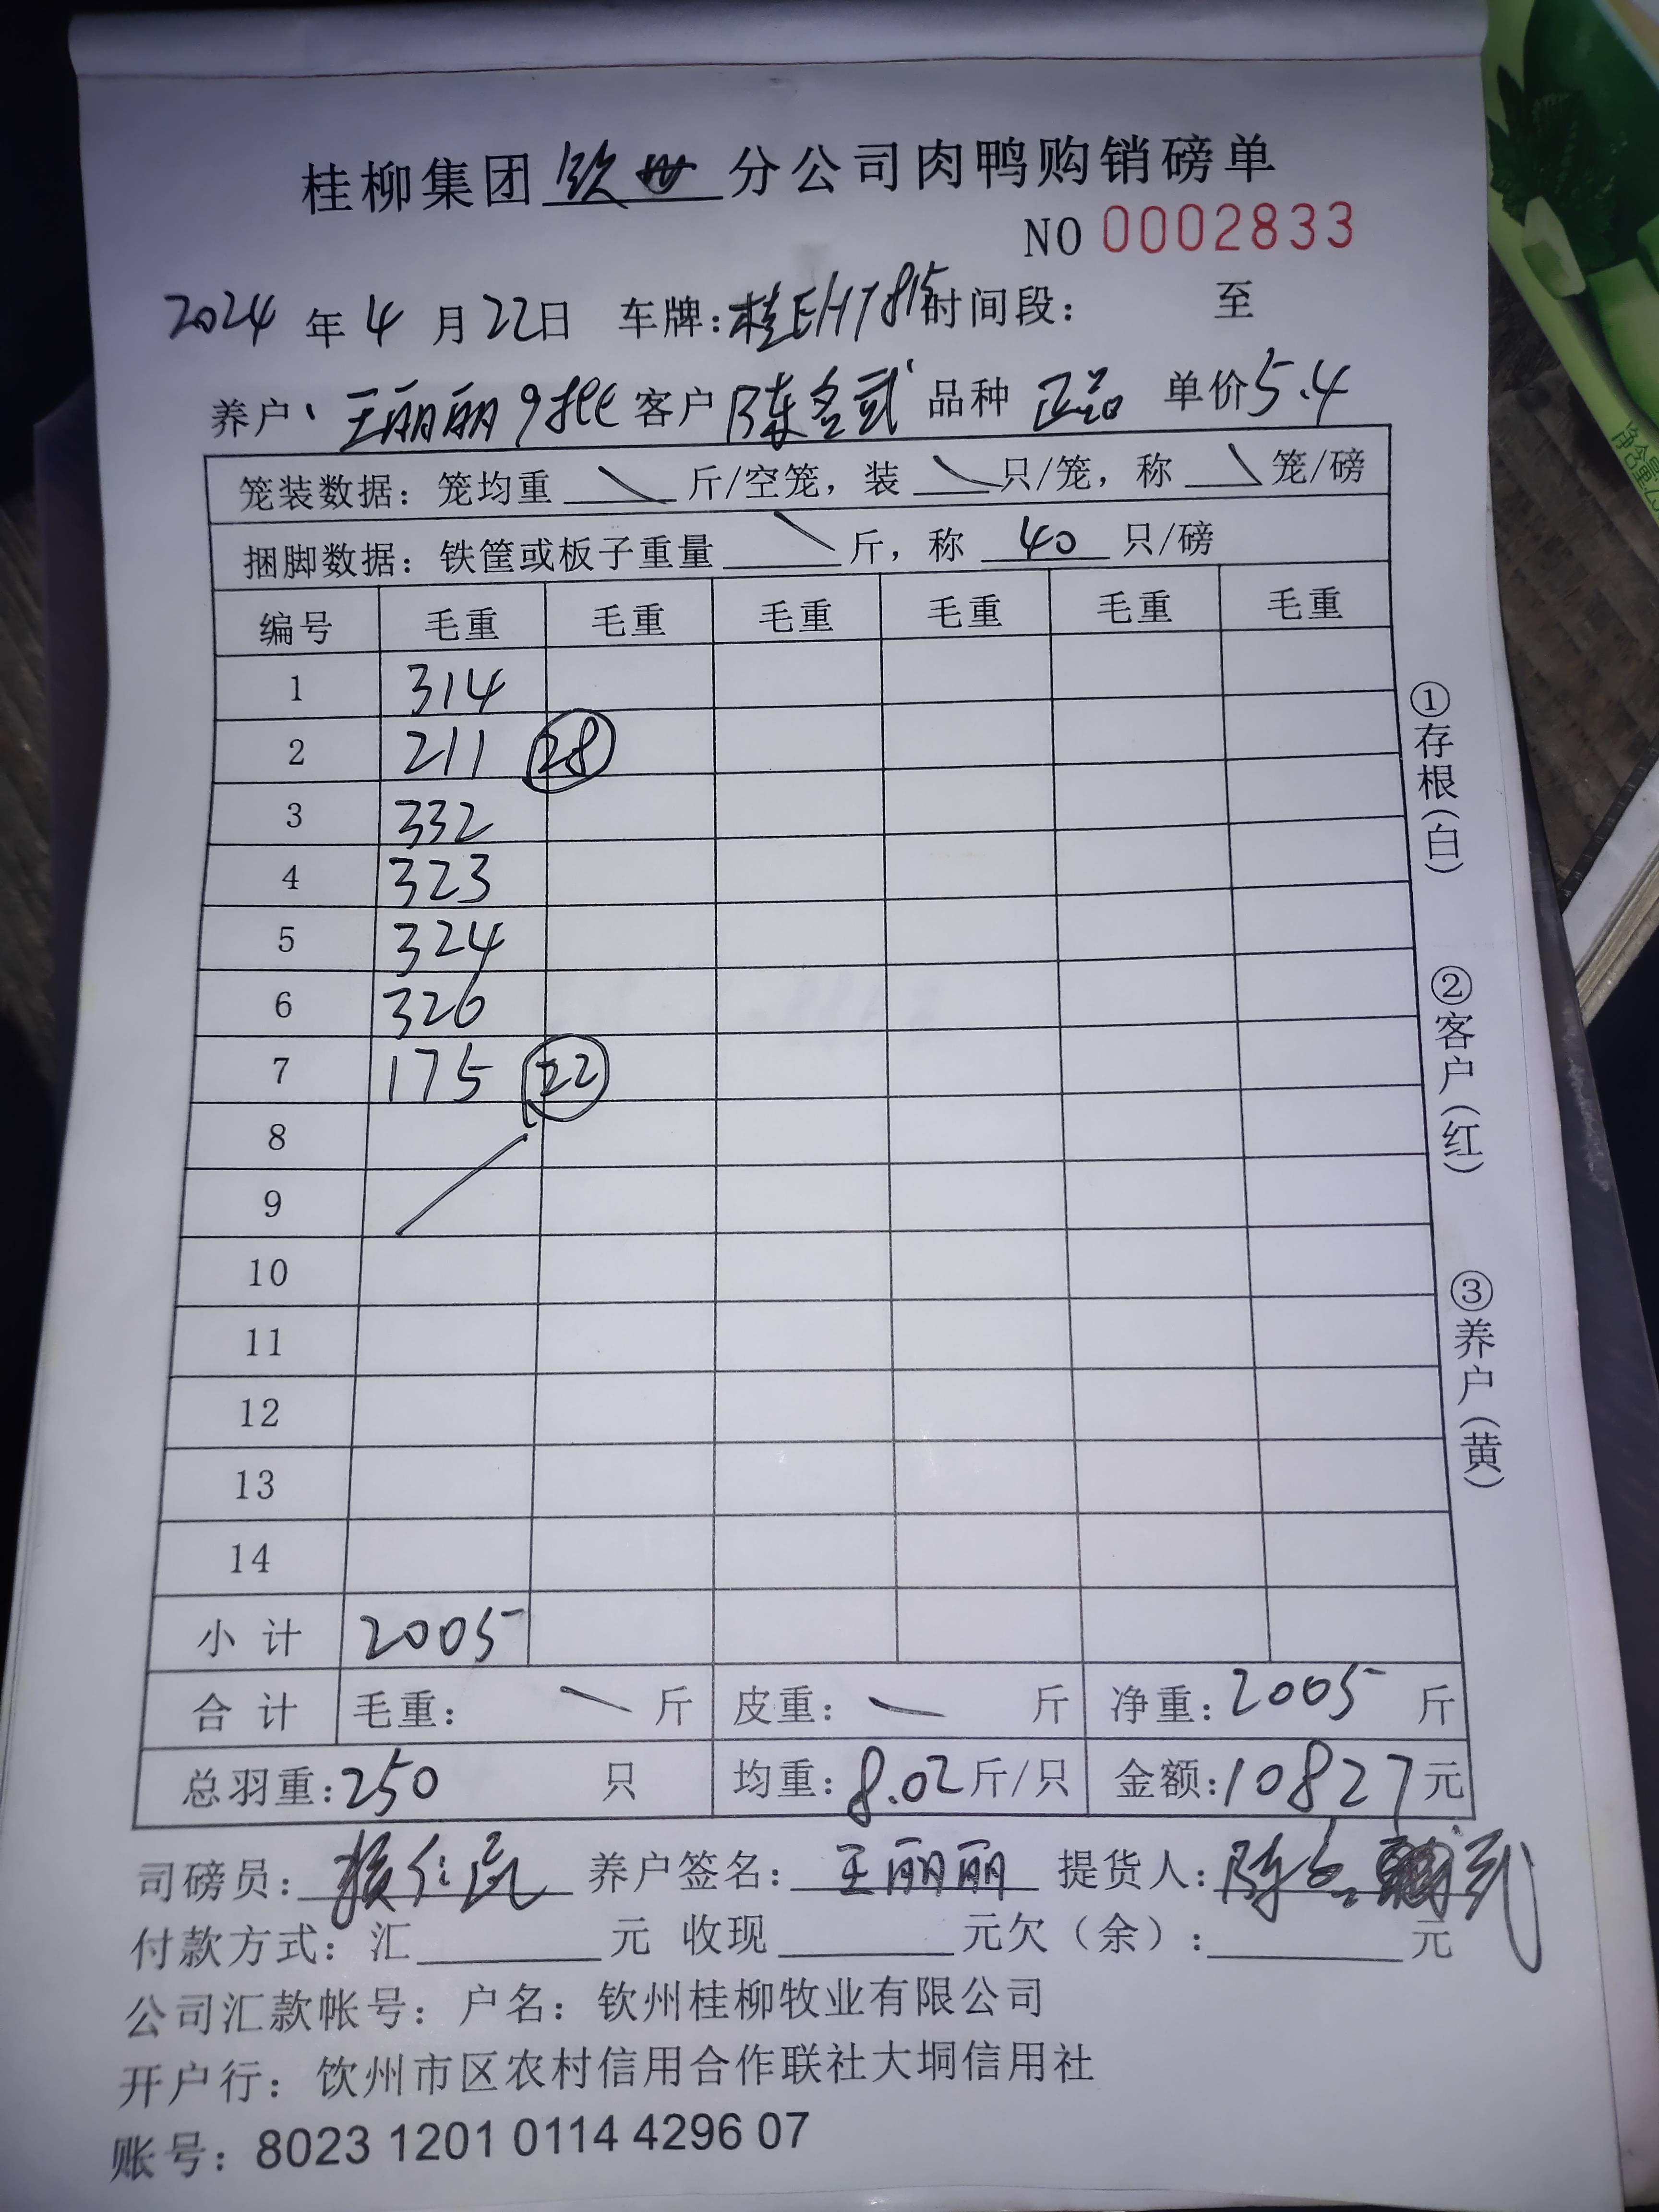 桂柳集团钦州分公司肉鸭购销磅单
NO 0002833
2024年4月22日 车牌:桂EHT815时间段: 至
养户、王丽丽9批 客户陈名武 品种 正品 单价5.4
笼装数据: 笼均重 \ 斤/空笼, 装 \ 只/笼, 称 \ 笼/磅
捆脚数据: 铁筐或板子重量 \ 斤, 称 40 只/磅
编号 毛重 毛重 毛重 毛重 毛重 毛重
1 314
2 211 28
3 332
4 323
5 324
6 326
7 175 22
8
9
10
11
12
13
14
小计 2005
合计 毛重: 斤 皮重: 斤 净重: 2005 斤
总羽重: 250 只 均重: 8.02斤/只 金额: 10827元
司磅员: 养户签名: 王丽丽 提货人: 陈名武
付款方式: 汇 元 收现 元欠(余): 元
公司汇款帐号: 户名: 钦州桂柳牧业有限公司
开户行: 钦州市区农村信用合作联社大垌信用社
账号: 8023 1201 0114 4296 07
①存根(白)
②客户(红)
③养户(黄)
净含量